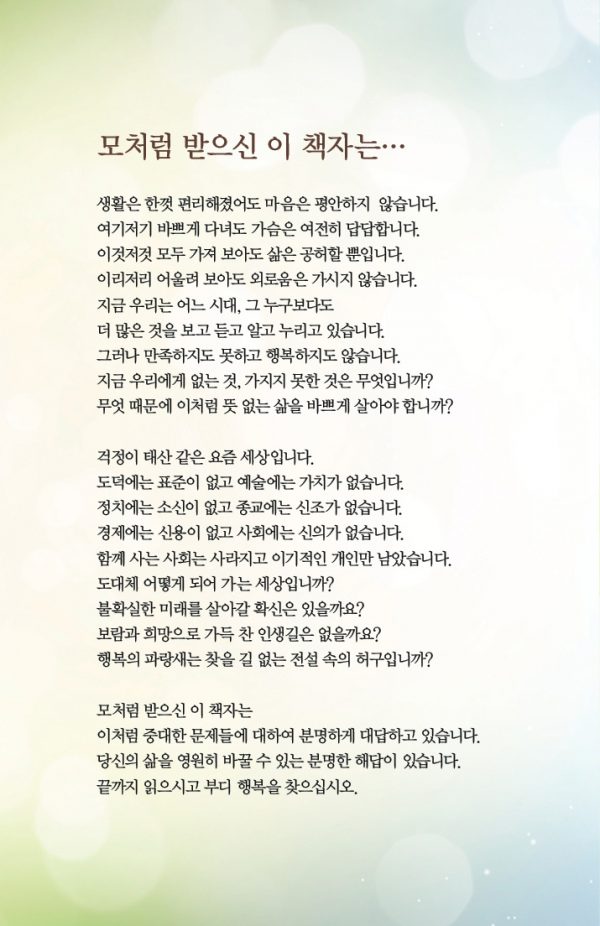 모처럼 받으신 이 책자는…
생활은 한껏 편리해졌어도 마음은 평안하지 않습니다.
여기저기 바쁘게 다녀도 가슴은 여전히 답답합니다.
이것저것 모두 가져 보아도 삶은 공허할 뿐입니다.
이리저리 어울려 보아도 외로움은 가시지 않습니다.
지금 우리는 어느 시대, 그 누구보다도
더 많은 것을 보고 듣고 알고 누리고 있습니다.
그러나 만족하지도 못하고 행복하지도 않습니다.
지금 우리에게 없는 것, 가지지 못한 것은 무엇입니까?
무엇 때문에 이처럼 뜻 없는 삶을 바쁘게 살아야 합니까?
걱정이 태산 같은 요즘 세상입니다.
도덕에는 표준이 없고 예술에는 가치가 없습니다.
정치에는 소신이 없고 종교에는 신조가 없습니다.
경제에는 신용이 없고 사회에는 신의가 없습니다.
함께 사는 사회는 사라지고 이기적인 개인만 남았습니다.
도대체 어떻게 되어 가는 세상입니까?
불확실한 미래를 살아갈 확신은 있을까요?
보람과 희망으로 가득 찬 인생길은 없을까요?
행복의 파랑새는 찾을 길 없는 전설 속의 허구입니까?
모처럼 받으신 이 책자는
이처럼 중대한 문제들에 대하여 분명하게 대답하고 있습니다.
당신의 삶을 영원히 바꿀 수 있는 분명한 해답이 있습니다.
끝까지 읽으시고 부디 행복을 찾으십시오.